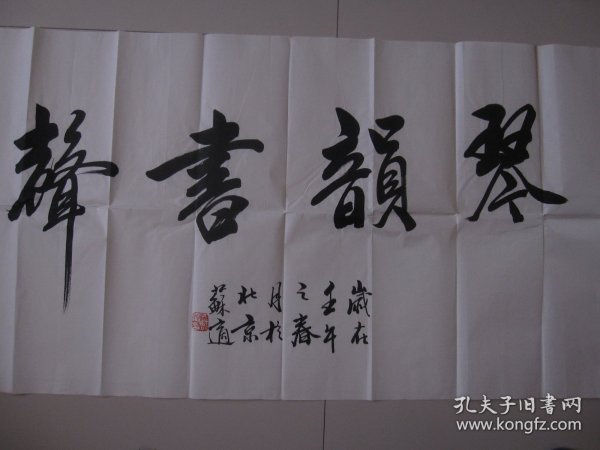 琴韻書聲
歲在
壬午
之春
月於
北京
蘇適
孔夫子旧書网
www.kongfz.com